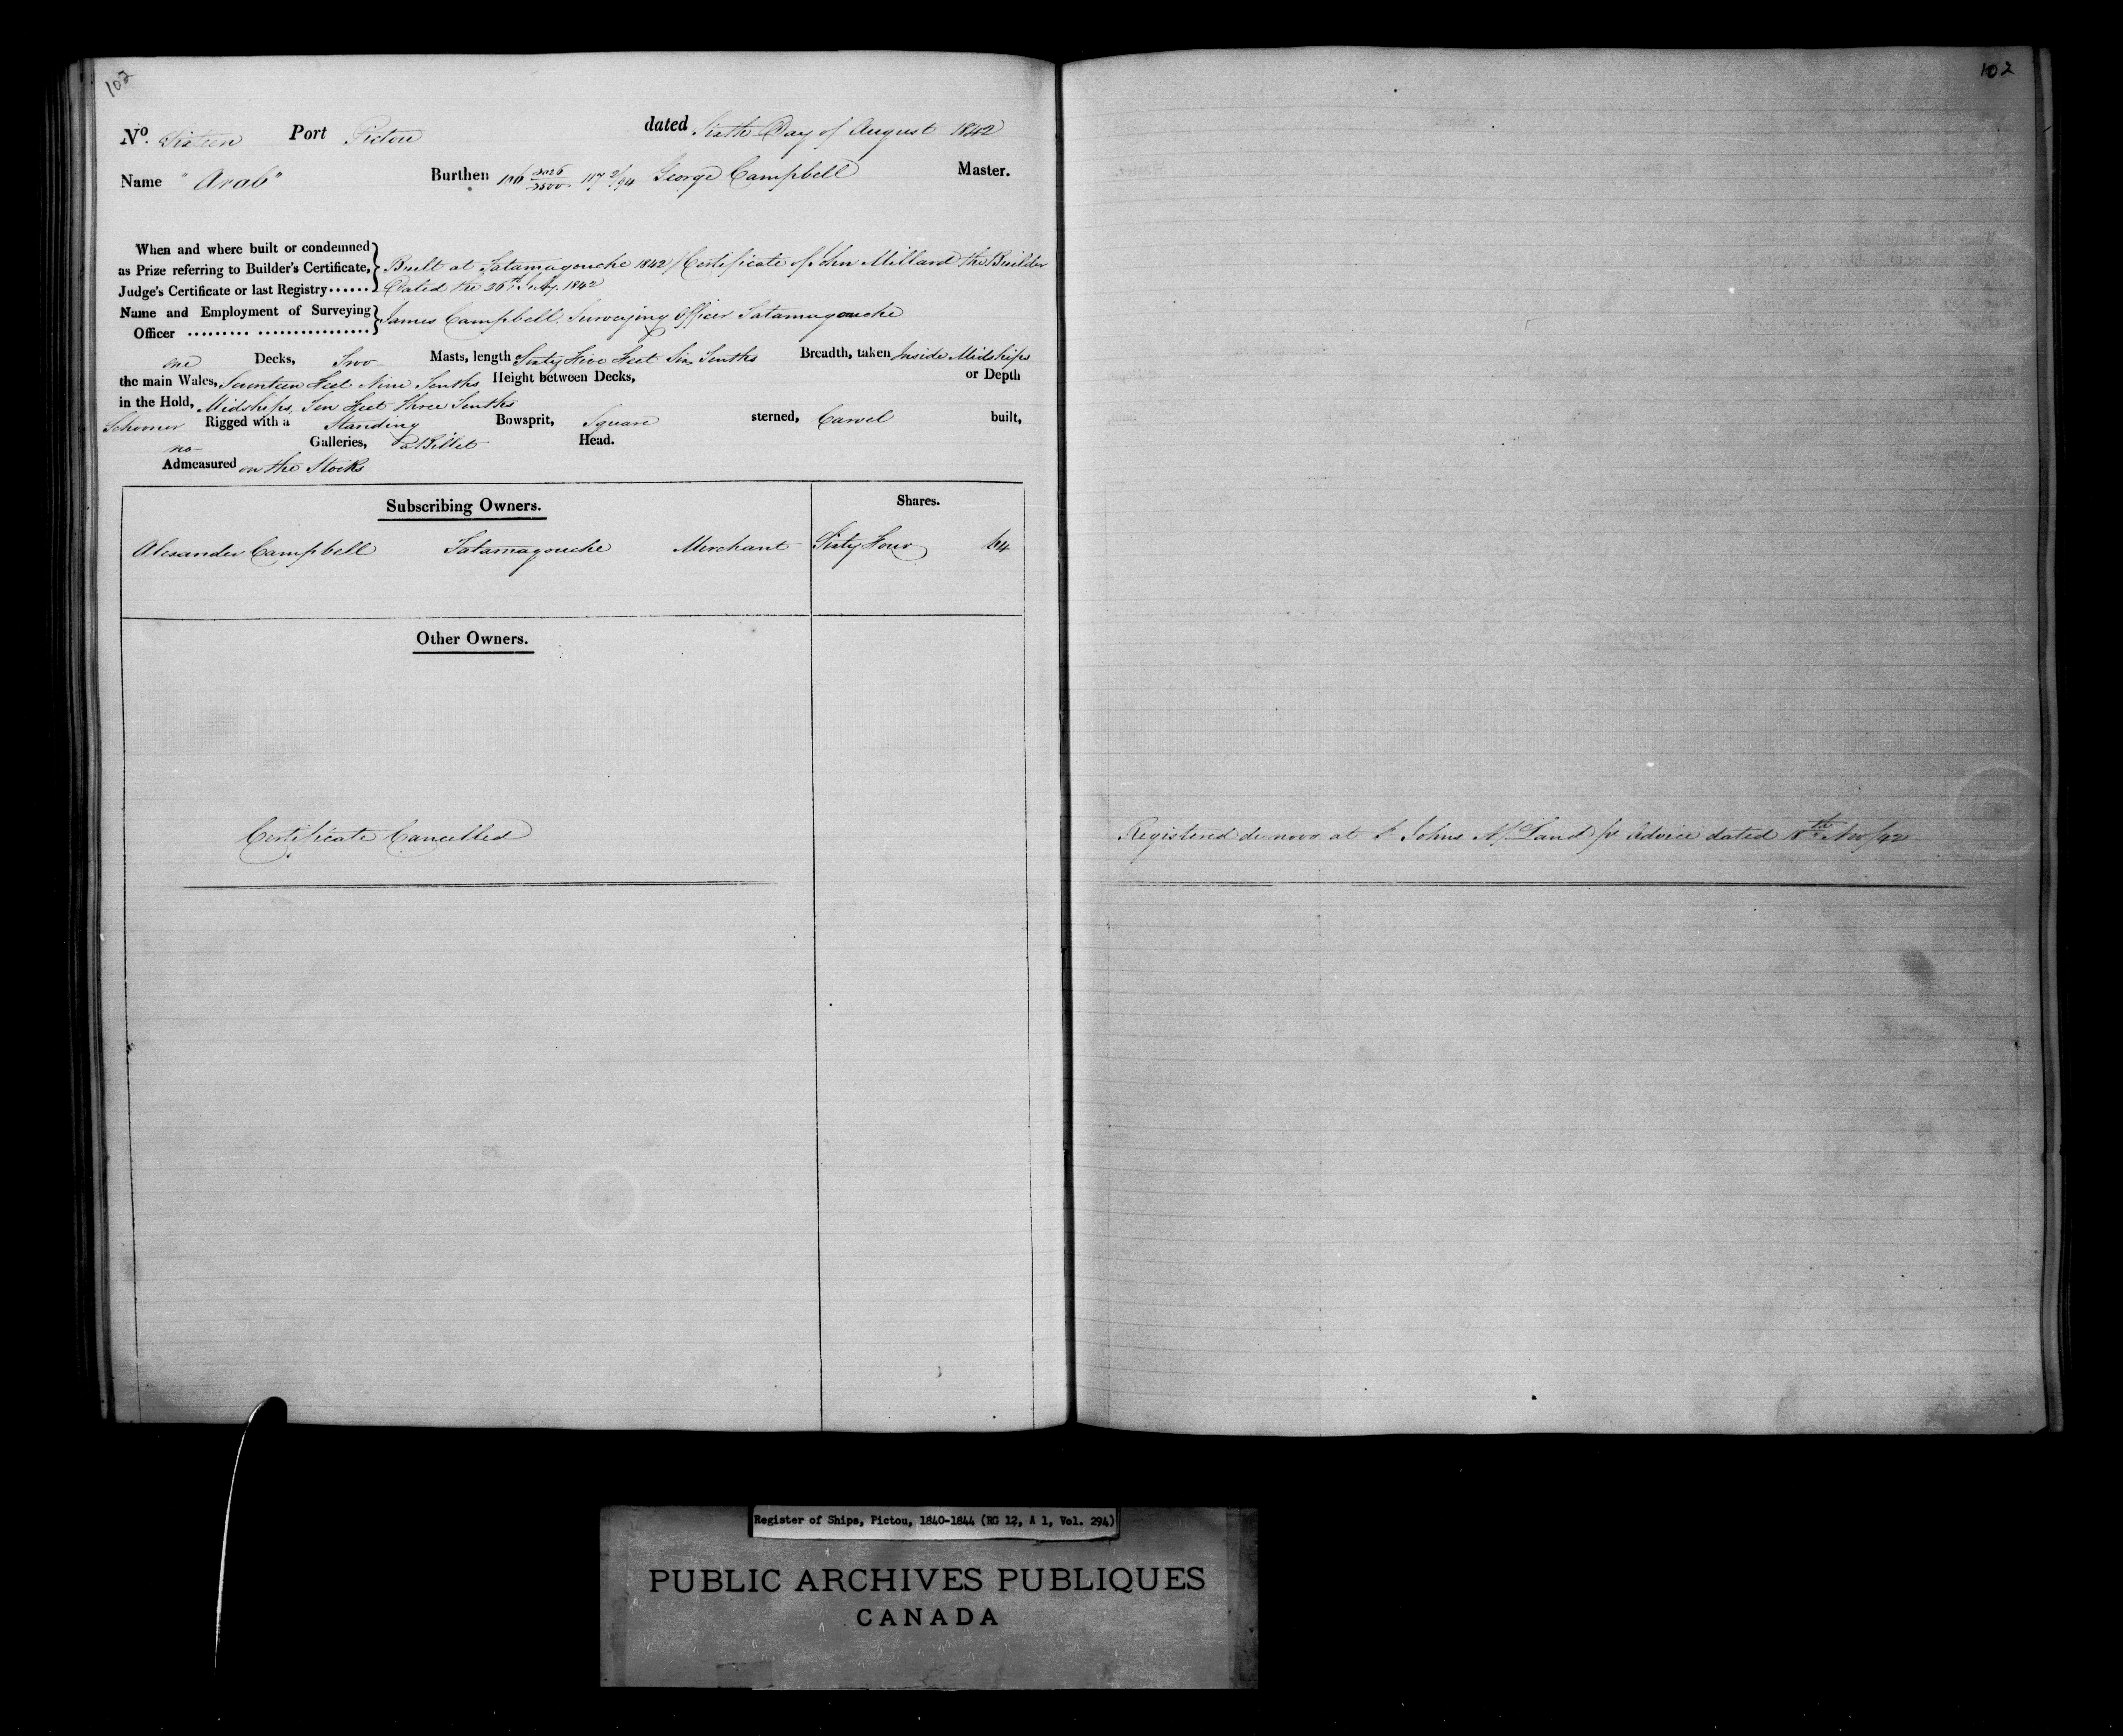 102
No. Sixteen Port Pictou dated Sixth Day of August 1842
Name "Arab" Burthen 106 2026/3500 117 2/94 George Campbell Master.
When and where built or condemned
as Prize referring to Builder's Certificate, Built at Tatamagouche 1842 / Certificate of John Millard the Builder
Judge's Certificate or last Registry...... Dated the 26th July 1842
Name and Employment of Surveying James Campbell Surveying Officer Tatamagouche
Officer ......... ................
one Decks, Two Masts, length Sixty Five Feet Six Tenths Breadth, taken Inside Midships
the main Wales, Seventeen Feet Nine Tenths Height between Decks, or Depth
in the Hold, Midships, Ten Feet three Tenths
Schooner Rigged with a Standing Bowsprit, Square sterned, Carvel built,
no Galleries, a Billet Head.
Admeasured on the Stocks
Subscribing Owners. Shares.
Alexander Campbell Tatamagouche Merchant Sixty Four 64
Other Owners.
Certificate Cancelled
102
Registered de novo at St Johns Nfd Land pr Advice dated 18th Nov/42
Register of Ships, Pictou, 1840-1844 (RG 12, A 1, Vol. 294)
PUBLIC ARCHIVES PUBLIQUES
CANADA